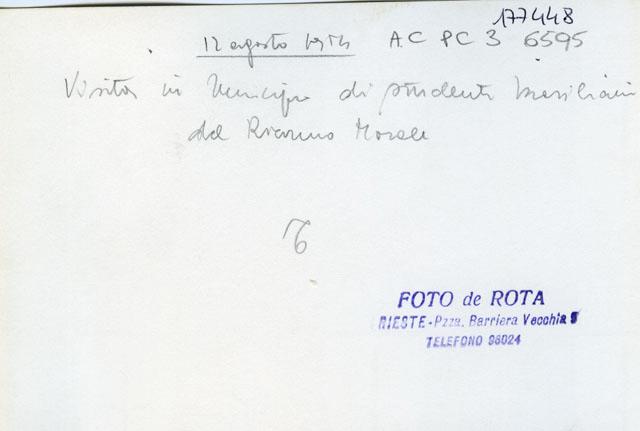 177448
12 agosto 1954 A.C PC 3 6595
Visita in Municipio di studenti brasiliani
del Riarmo Morale
6
FOTO de ROTA
RIESTE - Pzza. Barriera Vecchia
TELEFONO 96024